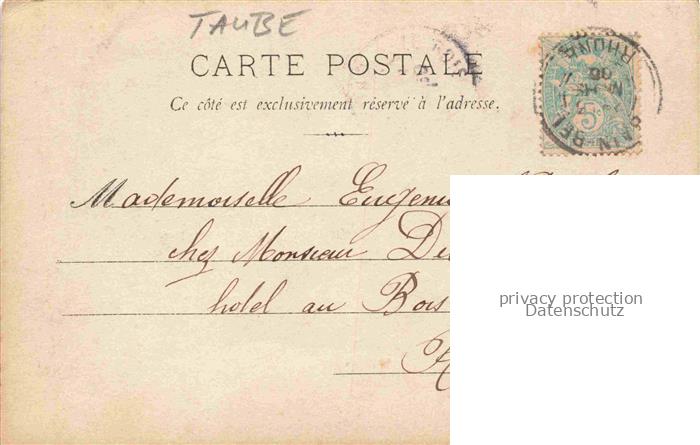 TAUBE
CARTE POSTALE
Ce côté est exclusivement réservé à l'adresse.
5c
SAIN BEL
RHONE
06
Mademoiselle
chez Monsieur
hotel au Bois
privacy protection
Datenschutz